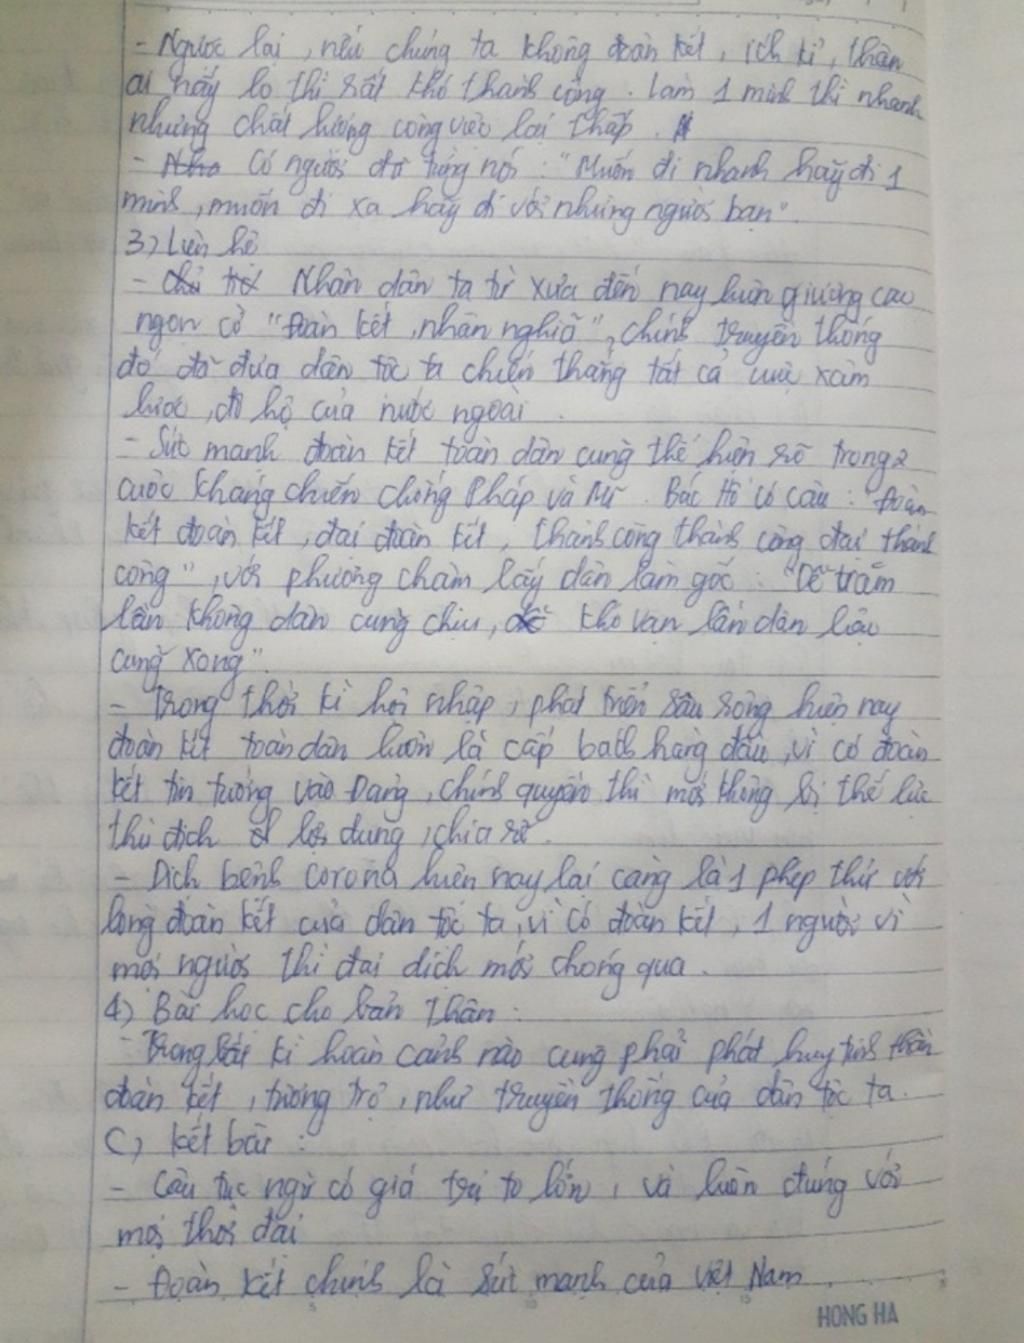 - Ngược lại, nếu chúng ta không đoàn kết, ích kỉ, thân
ai nấy lo thì rất khó thành công. Làm 1 mình thì nhanh
nhưng chất lượng công việc lại thấp.
- Có người đã từng nói: "Muốn đi nhanh hãy đi 1
mình, muốn đi xa hãy đi với những người bạn".
3) Liên hệ
- Nhân dân ta từ xưa đến nay luôn giương cao
ngọn cờ "Đoàn kết, nhân nghĩa", chính truyền thống
đó đã đưa dân tộc ta chiến thắng tất cả xâm
lược, đô hộ của nước ngoài.
- Sức mạnh đoàn kết toàn dân cũng thể hiện rõ trong 2
cuộc kháng chiến chống Pháp và Mĩ. Bác Hồ có câu: "Đoàn
kết đoàn kết, đại đoàn kết, thành công thành công đại thành
công", với phương châm lấy dân làm gốc: "Dễ trăm
lần không dân cũng chịu, khó vạn lần dân liệu
cũng xong".
- Trong thời kì hội nhập, phát triển sâu rộng hiện nay
đoàn kết toàn dân luôn là cấp bách hàng đầu, vì có đoàn
kết tin tưởng vào Đảng, chính quyền thì mới không bị thế lực
thù địch lợi dụng, chia rẽ.
- Dịch bệnh corona hiện nay lại càng là 1 phép thử với
lòng đoàn kết của dân tộc ta, vì có đoàn kết, 1 người vì
mọi người thì đại dịch mới chóng qua.
4) Bài học cho bản thân:
- Trong bất kì hoàn cảnh nào cũng phải phát huy tinh thần
đoàn kết, tương trợ, như truyền thống của dân tộc ta.
C) Kết bài:
- Câu tục ngữ có giá trị to lớn, và luôn đúng với
mọi thời đại
- Đoàn kết chính là sức mạnh của Việt Nam.
HONG HA